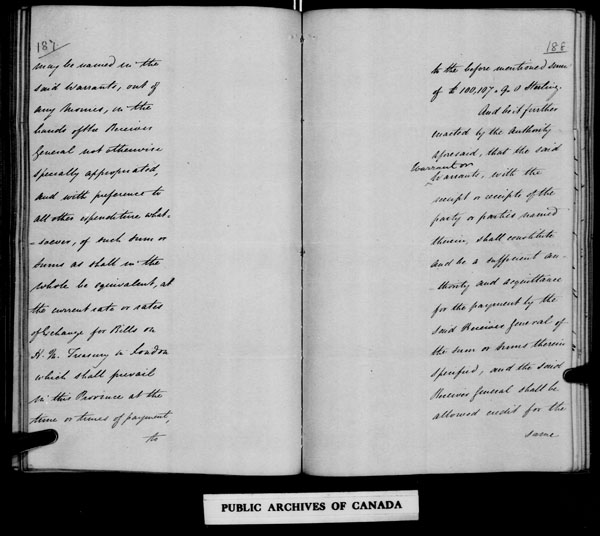 187
may be named in the
said Warrants, out of
any Monies, in the
hands of the Receiver
General not otherwise
specially appropriated,
and with preference to
all other expenditure what-
-soever, of such sum or
sums as shall in the
whole be equivalent, at
the current rate or rates
of Exchange for Bills on
H. M. Treasury in London
which shall prevail
in this Province at the
time or times of payment,
to
188
to the before mentioned sum
of £ 100,107. 9. 0 Sterling.
And be it further
enacted by the authority
aforesaid, that the said
Warrant or
Warrants, with the
receipt or receipts of the
party or parties named
therein, shall constitute
and be a sufficient au-
-thority and acquittance
for the payment by the
said Receiver General of
the sum or sums therein
specified, and the said
Receiver General shall be
allowed credit for the
same
PUBLIC ARCHIVES OF CANADA